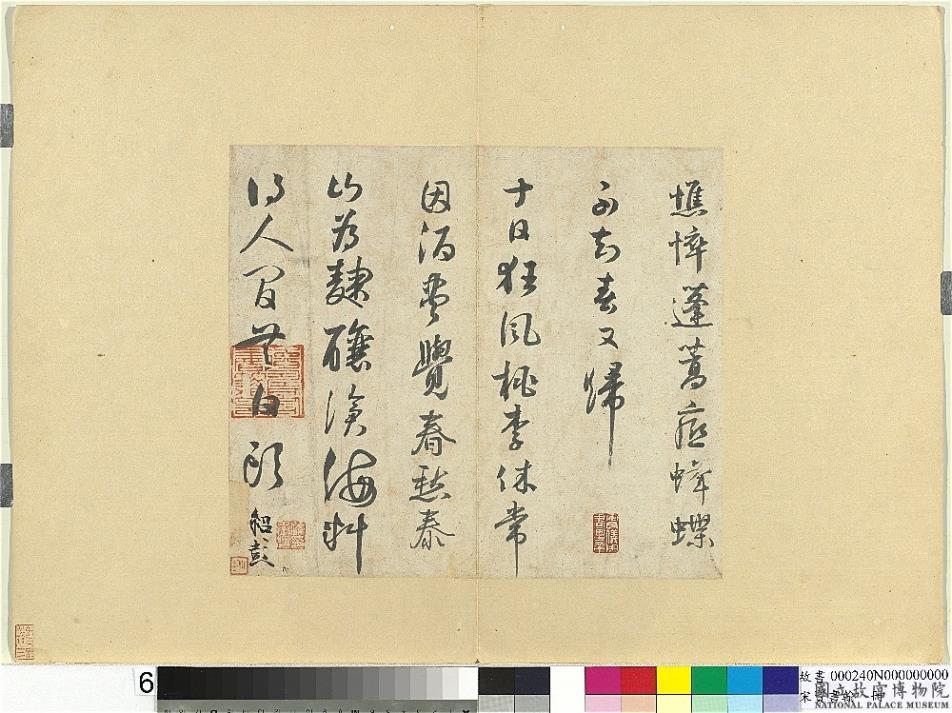 憔悴蓬蒿蝶
不知春又歸
十日狂風桃李休常
因酒盡覺春愁泰
山為麴釀滄海料
得人間無白頭
紹彭
6
故書 000240N000000000
國立故宮博物院
NATIONAL PALACE MUSEUM